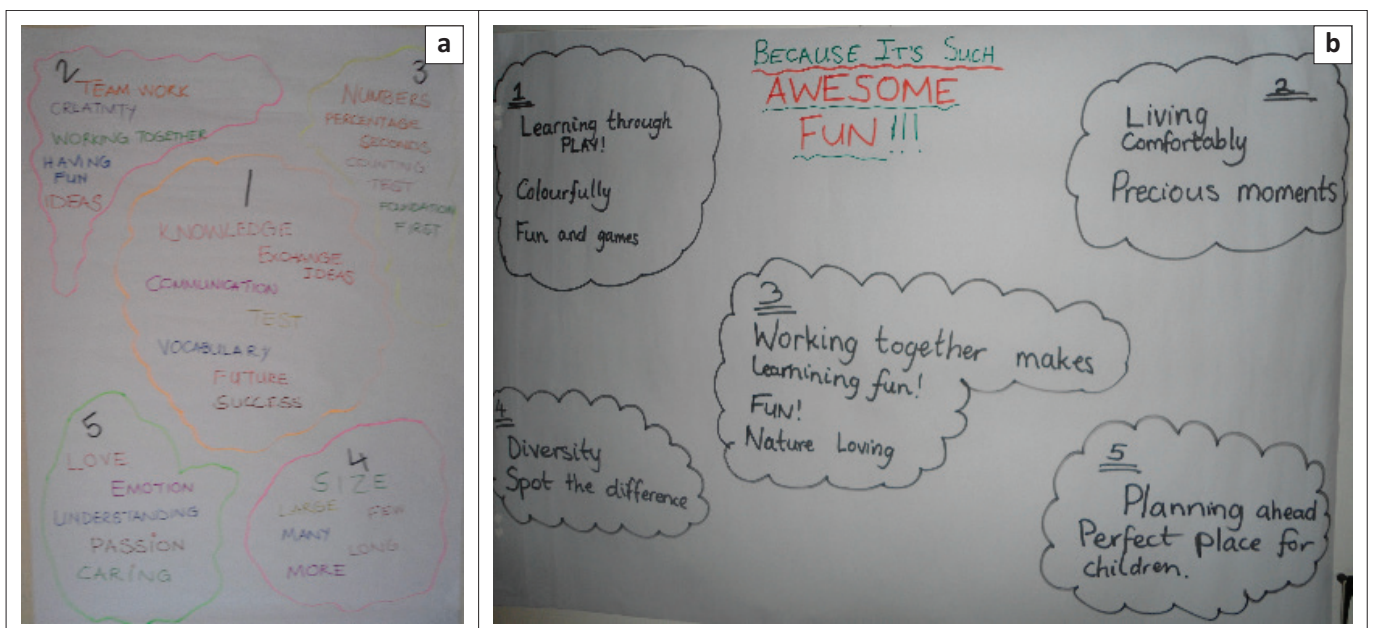 a
2
TEAM WORK
CREATIVITY
WORKING TOGETHER
HAVING
FUN
IDEAS
3
NUMBERS
PERCENTAGE
SECONDS
COUNTING
TEST
FOUNDATION
FIRST
1
KNOWLEDGE
EXCHANGE
IDEAS
COMMUNICATION
TEST
VOCABULARY
FUTURE
SUCCESS
5
LOVE
EMOTION
UNDERSTANDING
PASSION
CARING
4
SIZE
LARGE FEW
MANY
LONG
MORE
b
BECAUSE IT'S SUCH
AWESOME
FUN!!!
1
Learning through
PLAY!
Colourfully
Fun and games
2
Living
Comfortably
Precious moments
3
Working together makes
Learnining fun!
FUN!
Nature Loving
4
Diversity
Spot the difference
5
Planning ahead
Perfect place for
children.